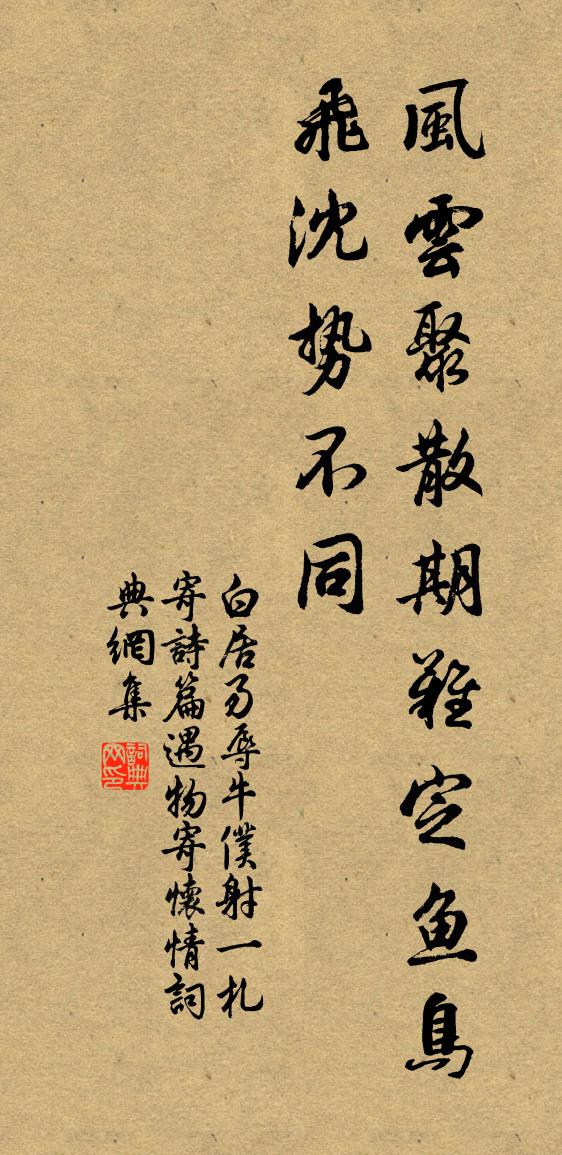 風雲聚散期難定魚鳥
飛沈勢不同
白居易辱牛僕射一札
寄詩篇遇物寄懷情詞
典網集
詞典
网印